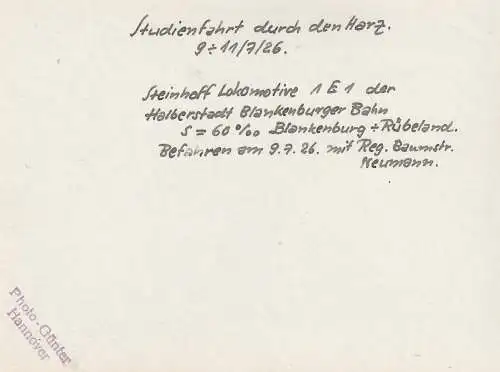 Studienfahrt durch den Harz.
9÷11/7/26.
Steinhoff Lokomotive 1 E 1 der
Halberstadt Blankenburger Bahn
S = 60 ‰ Blankenburg ÷ Rübeland.
Befahren am 9.7.26. mit Reg. Baumstr.
Neumann.
Photo-Günter
Hannover